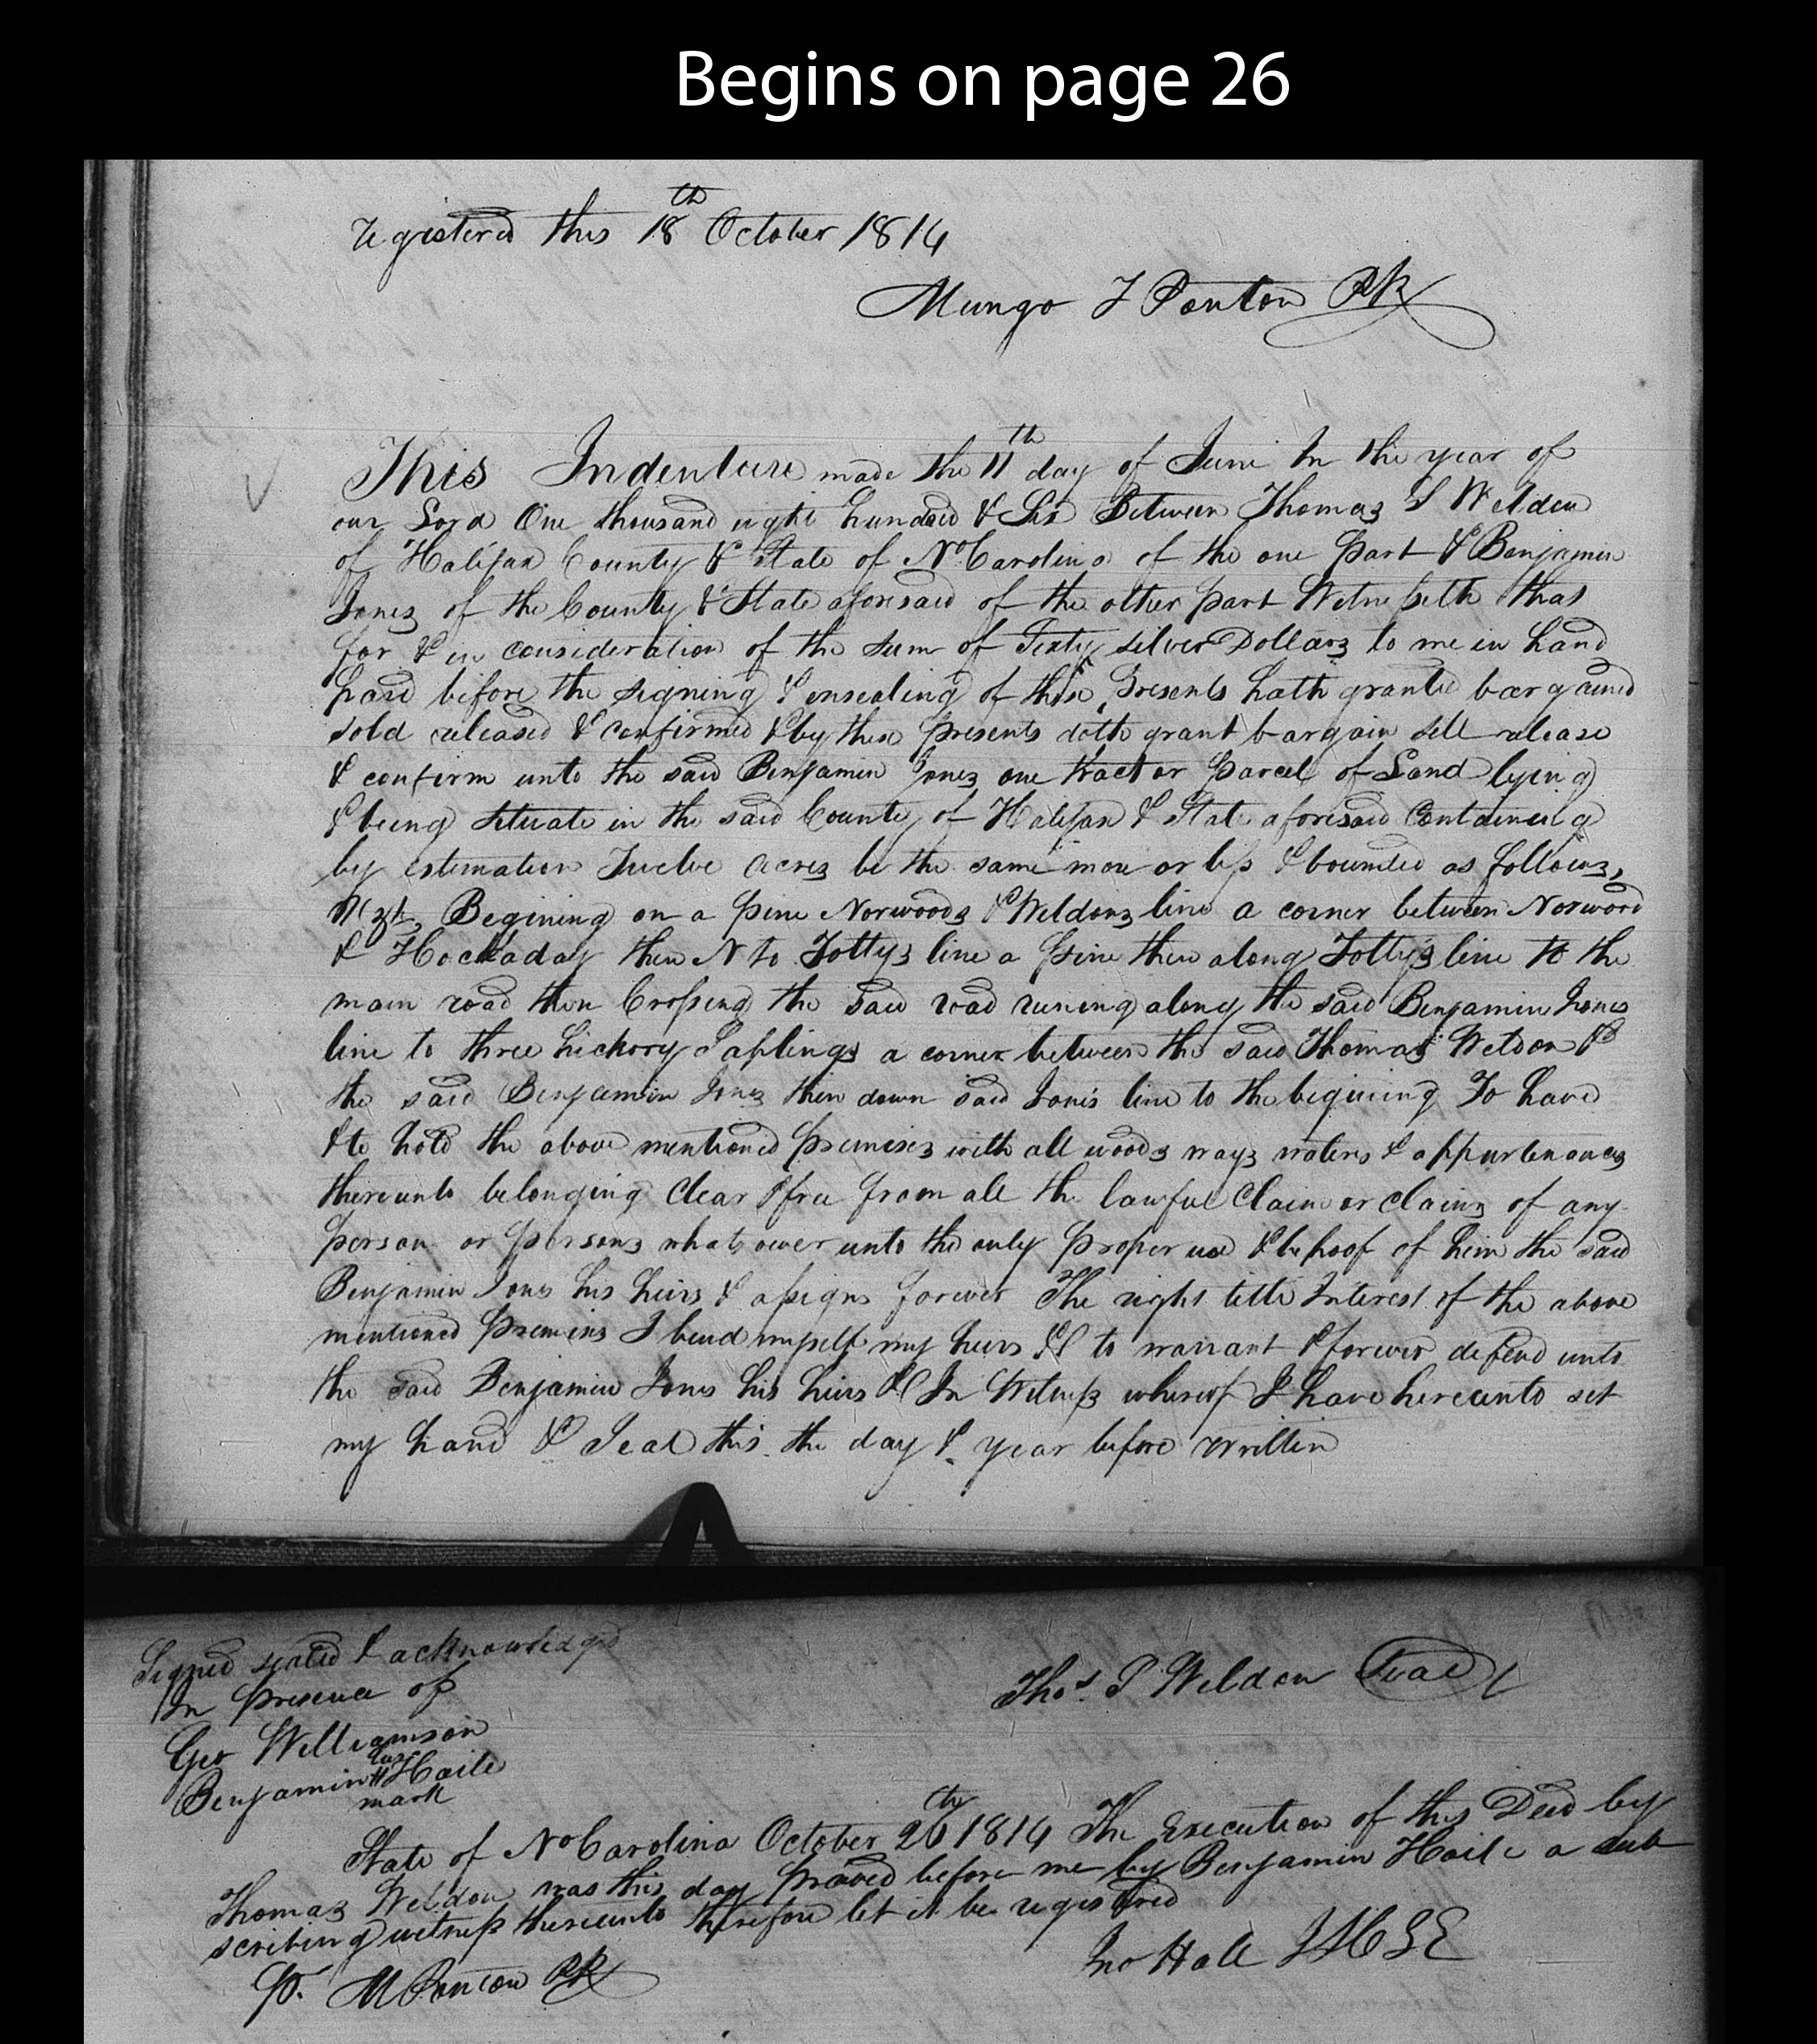 Begins on page 26
registered this 18th October 1814
Mungo T Ponton PR
This Indenture made the 11th day of June In the year of
our Lord One thousand eight hundred & Six Between Thomas P Weldon
of Halifax County & State of No Carolina of the one part & Benjamin
Jones of the County & State aforesaid of the other part Witnesseth that
for & in consideration of the sum of Sixty silver Dollars to me in hand
paid before the signing & ensealing of these Presents hath granted bargained
sold released & confirmed & by these presents doth grant bargain sell release
& confirm unto the said Benjamin Jones one tract or parcel of Land lying
& being situate in the said County of Halifax & State aforesaid Containing
by estimation Twelve acres be the same more or less & bounded as follows,
Begining on a pine Norwoods & Weldons line a corner between Norwood
& Hockaday then N to Tottys line a pine then along Totty's line to the
main road then Crossing the said road runing along the said Benjamin Jones
line to three hickory Saplings a corner between the said Thomas Weldon &
the said Benjamin Jones then down said Jones line to the begining To have
& to hold the above mentioned premises with all woods ways waters & appurtenances
thereunto belonging Clear & free from all the lawful Claim or Claims of any
person or persons whatsoever unto the only proper use & behoof of him the said
Benjamin Jones his heirs & assigns forever The right title Interest of the above
mentioned premises I bind myself my heirs &C to warrant & forever defend unto
the said Benjamin Jones his heirs &C In Witness whereof I have hereunto set
my hand & Seal this the day & year before written
Signed sealed & acknowledged
In presence of
Thos. P Weldon Seal
Geo Williamson
Benjamin his H Haile
mark
State of No Carolina October 26th 1814 The Execution of this Deed by
Thomas Weldon was this day proved before me by Benjamin Haile a sub
scribing witness thereunto therefore let it be registred
Jno Hall JSCLE
M Ponton PR